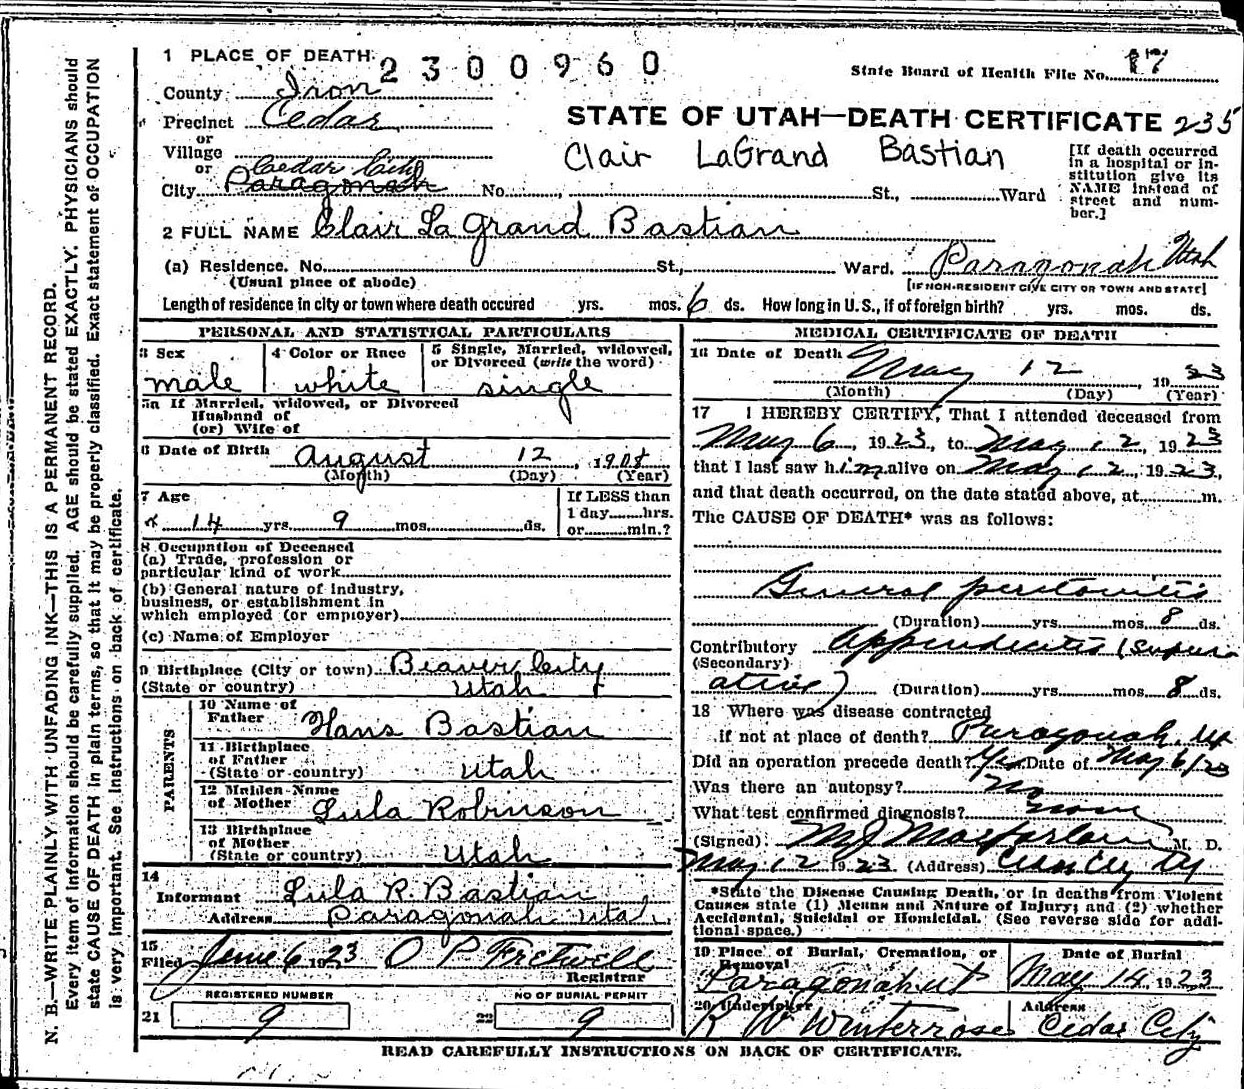 1 PLACE OF DEATH
2300960
State Board of Health File No. 17
County Iron
Precinct Cedar
STATE OF UTAH—DEATH CERTIFICATE 235
or
Village
Clair LaGrand Bastian
[If death occurred in a hospital or institution give its NAME instead of street and number.]
or
Cedar City
City Paragonah No. St., Ward
2 FULL NAME Clair La Grand Bastian
(a) Residence. No. St., Ward. Paragonah Utah
(Usual place of abode) [IF NON-RESIDENT GIVE CITY OR TOWN AND STATE]
Length of residence in city or town where death occured yrs. mos. 6 ds. How long in U.S., if of foreign birth? yrs. mos. ds.
PERSONAL AND STATISTICAL PARTICULARS
3 Sex
male
4 Color or Race
white
5 Single, Married, widowed, or Divorced (write the word)
single
5a If Married, widowed, or Divorced
Husband of
(or) Wife of
6 Date of Birth August 12, 1908
(Month) (Day) (Year)
7 Age
14 yrs. 9 mos. ds.
If LESS than
1 day hrs.
or min.?
8 Occupation of Deceased
(a) Trade, profession or
particular kind of work
(b) General nature of industry,
business, or establishment in
which employed (or employer)
(c) Name of Employer
9 Birthplace (City or town) Beaver City
(State or country) Utah
PARENTS
10 Name of
Father Hans Bastian
11 Birthplace
of Father
(State or country) Utah
12 Maiden Name
of Mother Lula Robinson
13 Birthplace
of Mother
(State or country) Utah
14
Informant Lula R. Bastian
Address Paragonah Utah
15
Filed June 6 1923 O P Fretwell
Registrar
REGISTERED NUMBER
21 9
NO OF BURIAL PERMIT
22 9
MEDICAL CERTIFICATE OF DEATH
16 Date of Death May 12, 1923
(Month) (Day) (Year)
17 I HEREBY CERTIFY, That I attended deceased from
May 6, 1923, to May 12, 1923
that I last saw him alive on May 12, 1923,
and that death occurred, on the date stated above, at m.
The CAUSE OF DEATH* was as follows:
General peritonitis
(Duration) yrs. mos. 8 ds.
Contributory Appendicitis (supur
(Secondary)
ative) (Duration) yrs. mos. 8 ds.
18 Where was disease contracted
if not at place of death? Paragonah. Ut
Did an operation precede death? Yes Date of May 6/23
Was there an autopsy? No
What test confirmed diagnosis? none
(Signed) M J Macfarlane M. D.
May 12 1923 (Address)
*State the Disease Causing Death, or in deaths from Violent
Causes state (1) Means and Nature of Injury; and (2) whether
Accidental, Suicidal or Homicidal. (See reverse side for addi-
tional space.)
19 Place of Burial, Cremation, or
Removal
Paragonah ut
Date of Burial
May 14 1923
20 Undertaker
R W Winterrose
Address
Cedar City
READ CAREFULLY INSTRUCTIONS ON BACK OF CERTIFICATE.
N. B.—WRITE PLAINLY WITH UNFADING INK—THIS IS A PERMANENT RECORD.
Every item of information should be carefully supplied. AGE should be stated EXACTLY. PHYSICIANS should
state CAUSE OF DEATH in plain terms, so that it may be properly classified. Exact statement of OCCUPATION
is very important. See instructions on back of certificate.